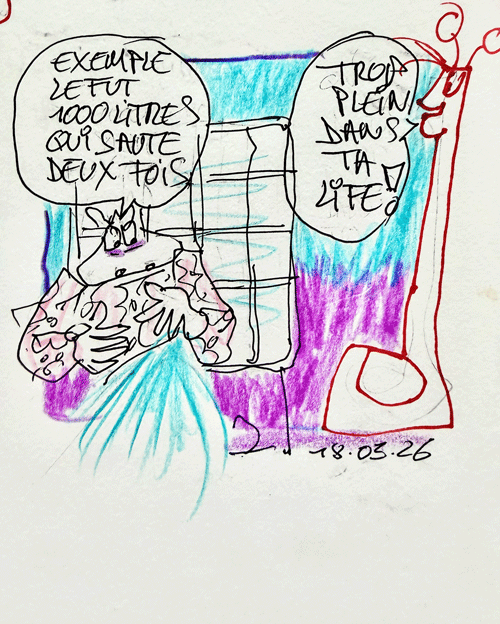 EXEMPLE
LE FUT
1000 LITRES
QUI SAUTE
DEUX FOIS
TROP
PLEIN
DANS
TA
LIFE!
18.03.26